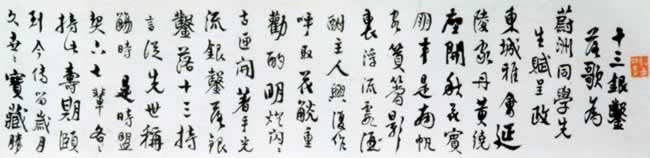 十三銀鑿
落歌為
蔚洲同學先
生賦呈政
東城雅會延
陵家丹黃繞
座開秋花賓
朋來是南帆
篙影
裏浮流霞酒
酬主人興復作
呼取花觥重
勸酌明燈閃々
古匣開著手光
流銀鑿落銀
鑿落十三持
言從先世稱
觴時是時盟
契六七輩各々
持此壽期頤
到今傳留歲月
久世々寶藏勝